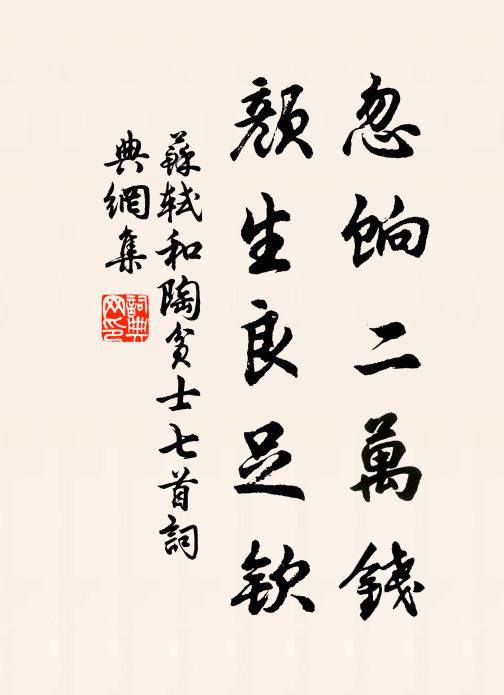 忽餉二萬錢
顏生良足欽
蘇軾和陶貧士七首詞
典網集
詞典网印